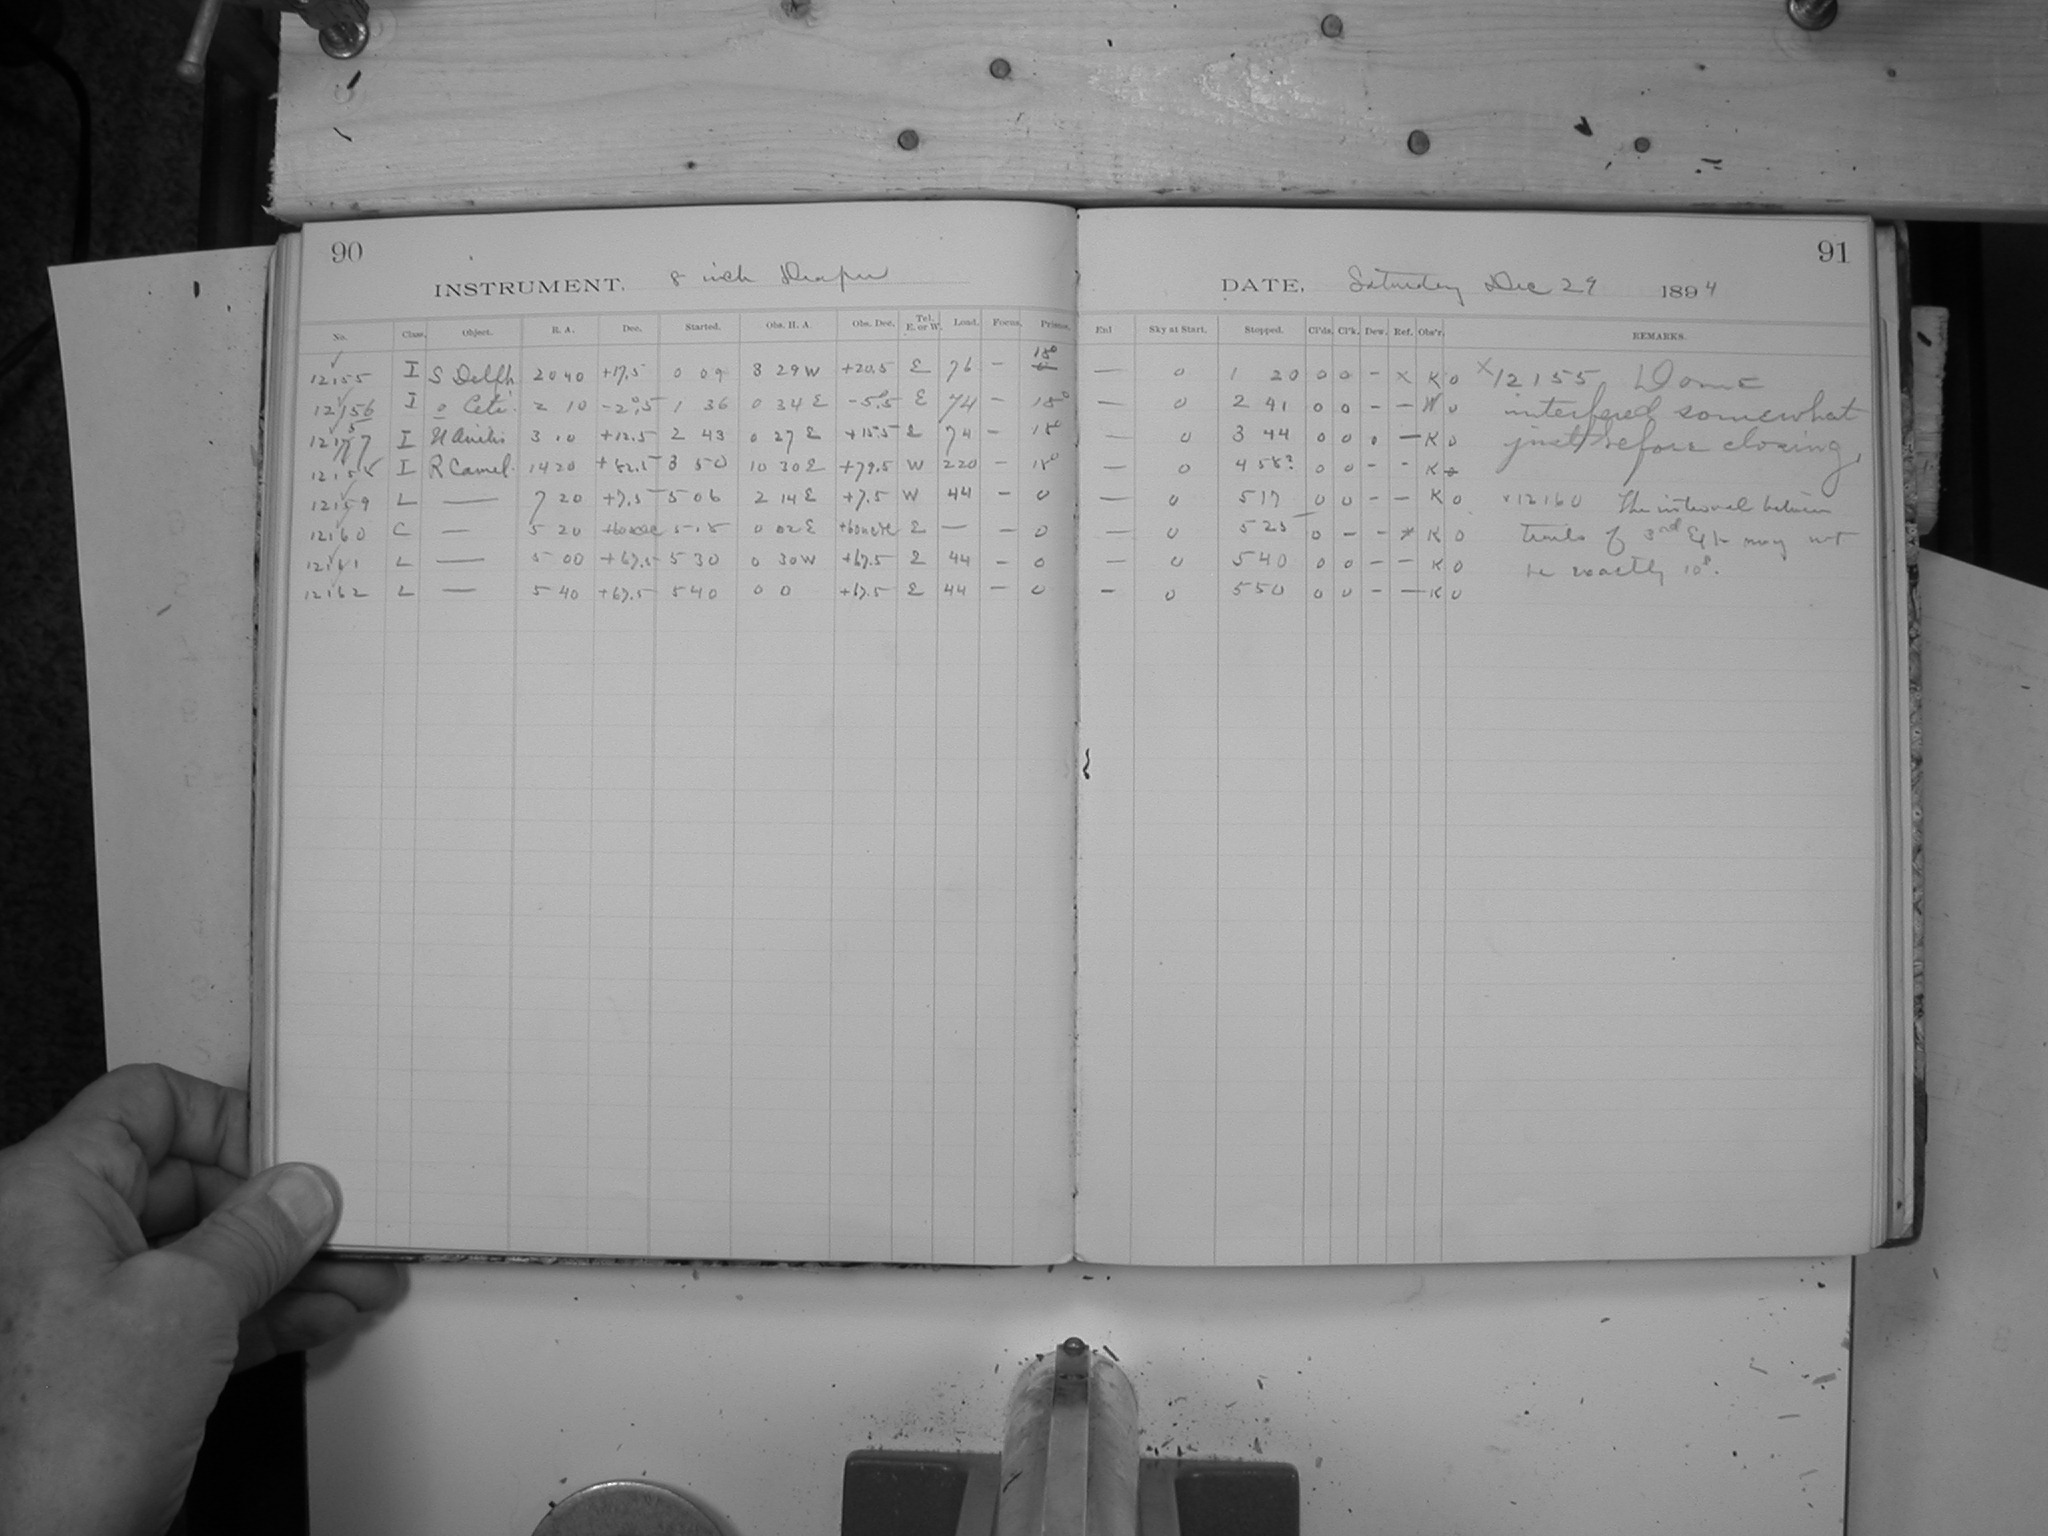 90
INSTRUMENT. 8 inch Draper
No. Class. Object. R. A. Dec. Started. Obs. H. A. Obs. Dec. Tel. E. or W. Load. Focus. Prisms.
12155 I S Delph. 20 40 +17.5 0 09 3 29 W +20.5 E 76 — 15°
12156 I o Ceti 2 10 -2°.5 1 36 0 34 E -5°.5 E 74 — 15°
12157 I U Arietis 3 10 +12.5 2 43 0 27 E +15.5 E 74 — 15°
12158 I R Camel. 14 20 3 50 10 30 E +79.5 W 220 — 15°
12159 L — 7 20 +7.5 5 06 2 14 E +7.5 W 44 — 0
12160 C — 5 20 5 15 0 02 E E — — 0
12161 L — 5 00 +67.5 5 30 0 30 W +67.5 E 44 — 0
12162 L — 5 40 +67.5 5 40 0 0 +67.5 E 44 — 0
91
DATE, Saturday Dec 29 1894
Enl Sky at Start. Stopped. Cl'ds. Cl'k. Dew. Ref. Obs'r. REMARKS.
— 0 1 20 0 0 - x K 0
— 0 2 41 0 0 - — 0
— 0 3 44 0 0 0 — K 0
— 0 4 55? 0 0 - - K
— 0 5 17 0 0 - — K 0
— 0 5 25 0 - - x K 0
— 0 5 40 0 0 - — K 0
— 0 5 50 0 0 - — K 0
x12155 Dome
interfered somewhat
just before closing.
x12160 The interval between
trails of 3rd & 4th may not
be exactly 10s.